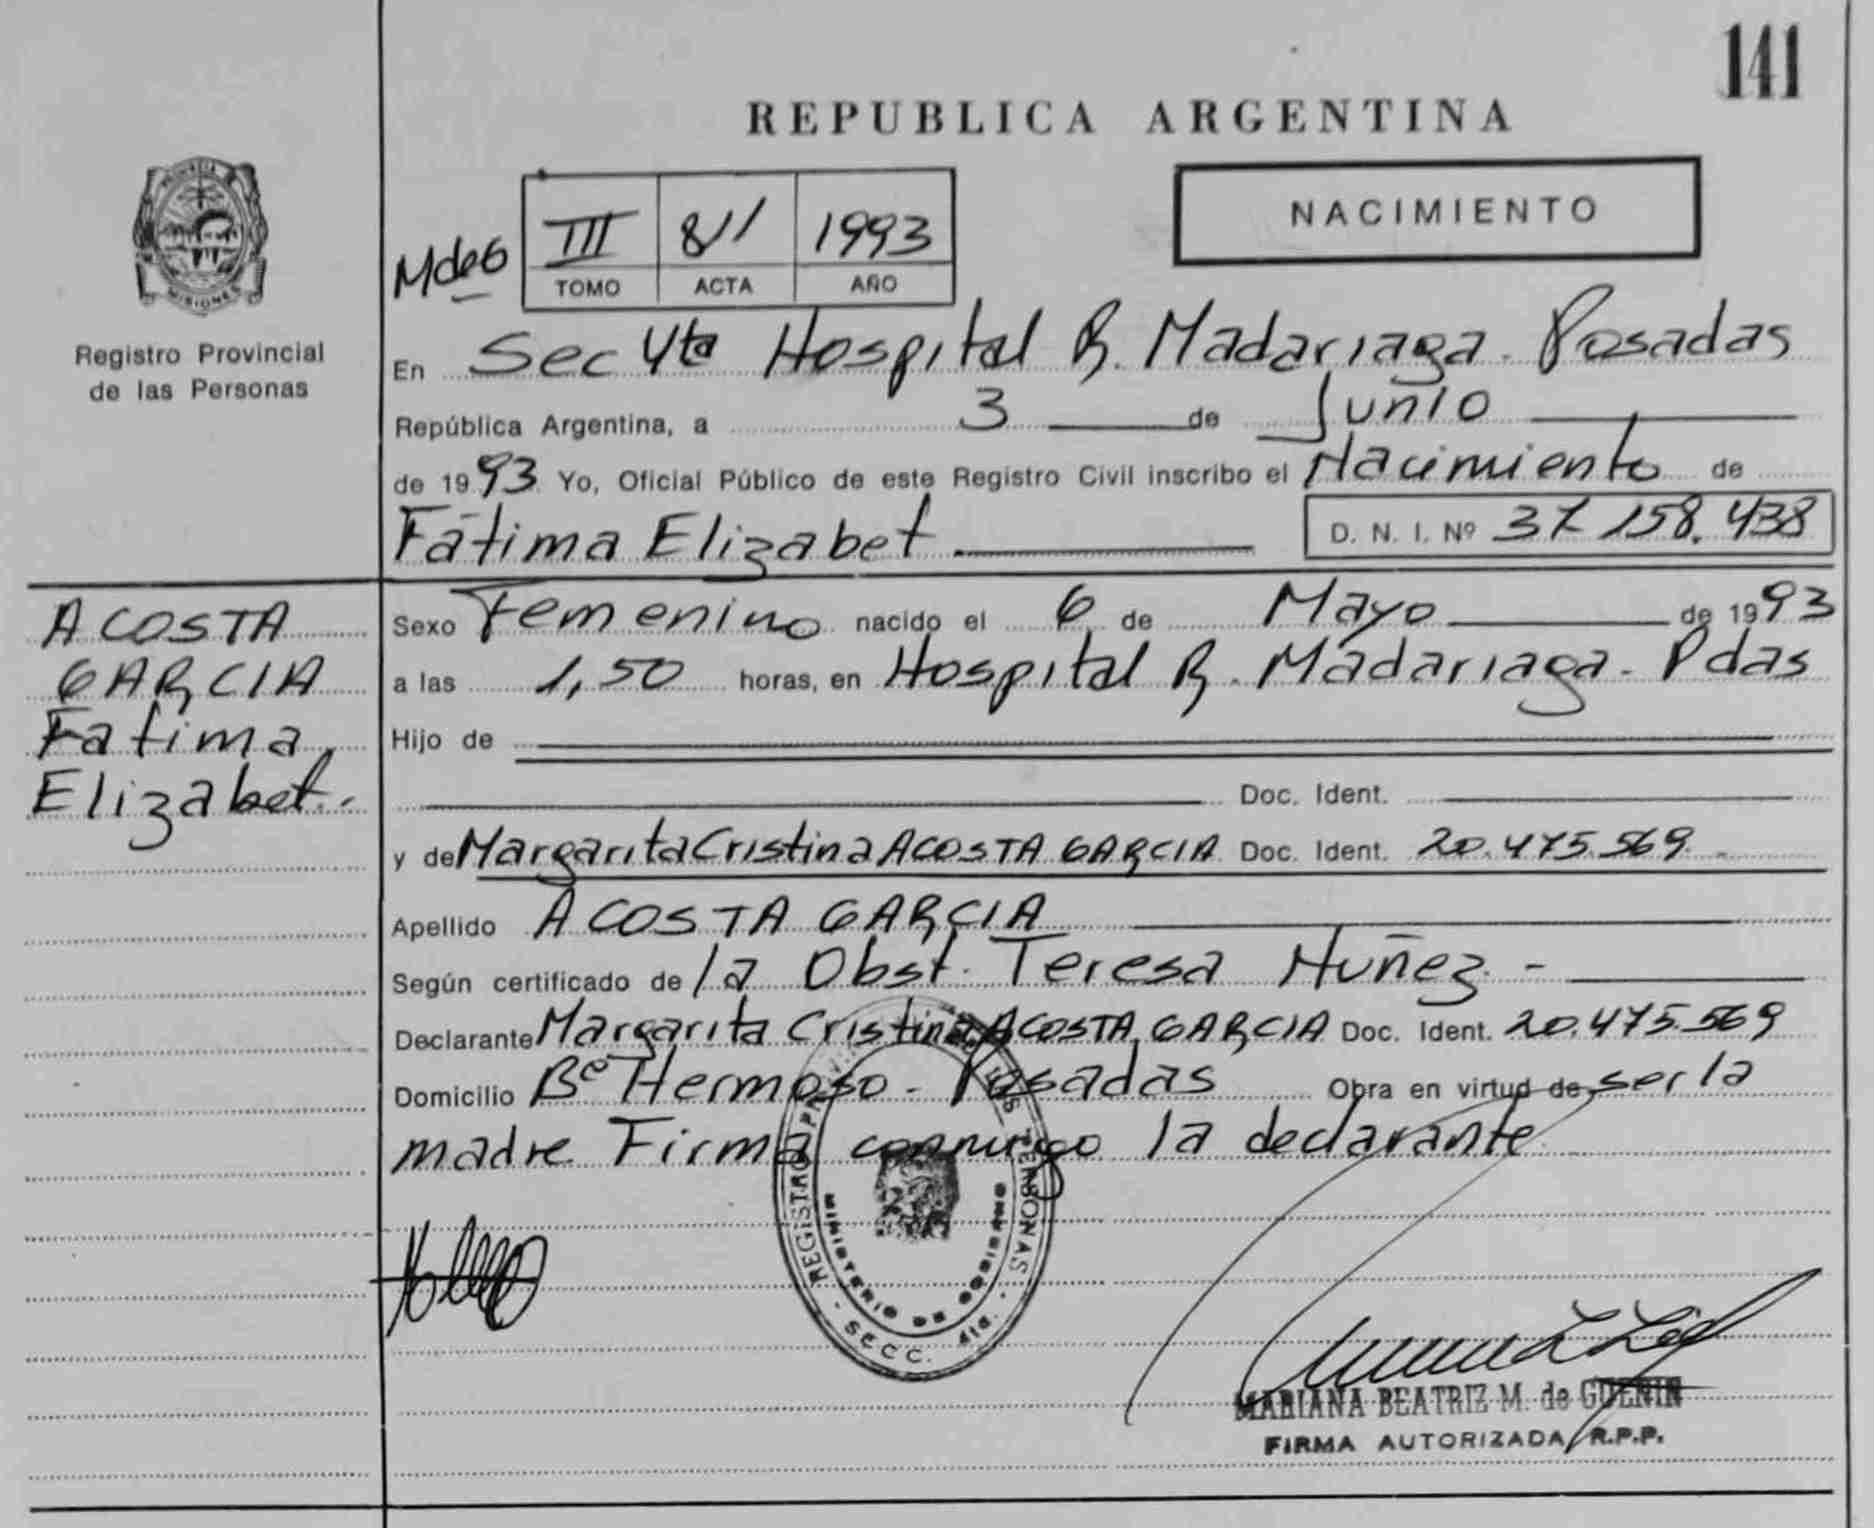 141
REPUBLICA ARGENTINA
NACIMIENTO
PROVINCIA DE MISIONES
Registro Provincial
de las Personas
III 811 1993
TOMO ACTA AÑO
En Sec 4ta Hospital R. Madariaga. Posadas
República Argentina, a 3 de Junio
de 1993 Yo, Oficial Público de este Registro Civil inscribo el Nacimiento de
Fátima Elizabet D. N. I. Nº 37 158.438
ACOSTA
GARCIA
Fatima
Elizabet.
Sexo Femenino nacido el 6 de Mayo de 1993
a las 1,50 horas, en Hospital R. Madariaga. Pdas
Hijo de
Doc. Ident.
y de Margarita Cristina ACOSTA GARCIA Doc. Ident. 20.475.569
Apellido ACOSTA GARCIA
Según certificado de la Obst. Teresa Nuñez. -
Declarante Margarita Cristina ACOSTA GARCIA Doc. Ident. 20.475.569
Domicilio Bº Hermoso - Posadas Obra en virtud de ser la
madre Firma conmigo la declarante
REGISTRO PROVINCIAL DE LAS PERSONAS
MINISTERIO DE GOBIERNO
MARIANA BEATRIZ M. de GUENIN
FIRMA AUTORIZADA R.P.P.